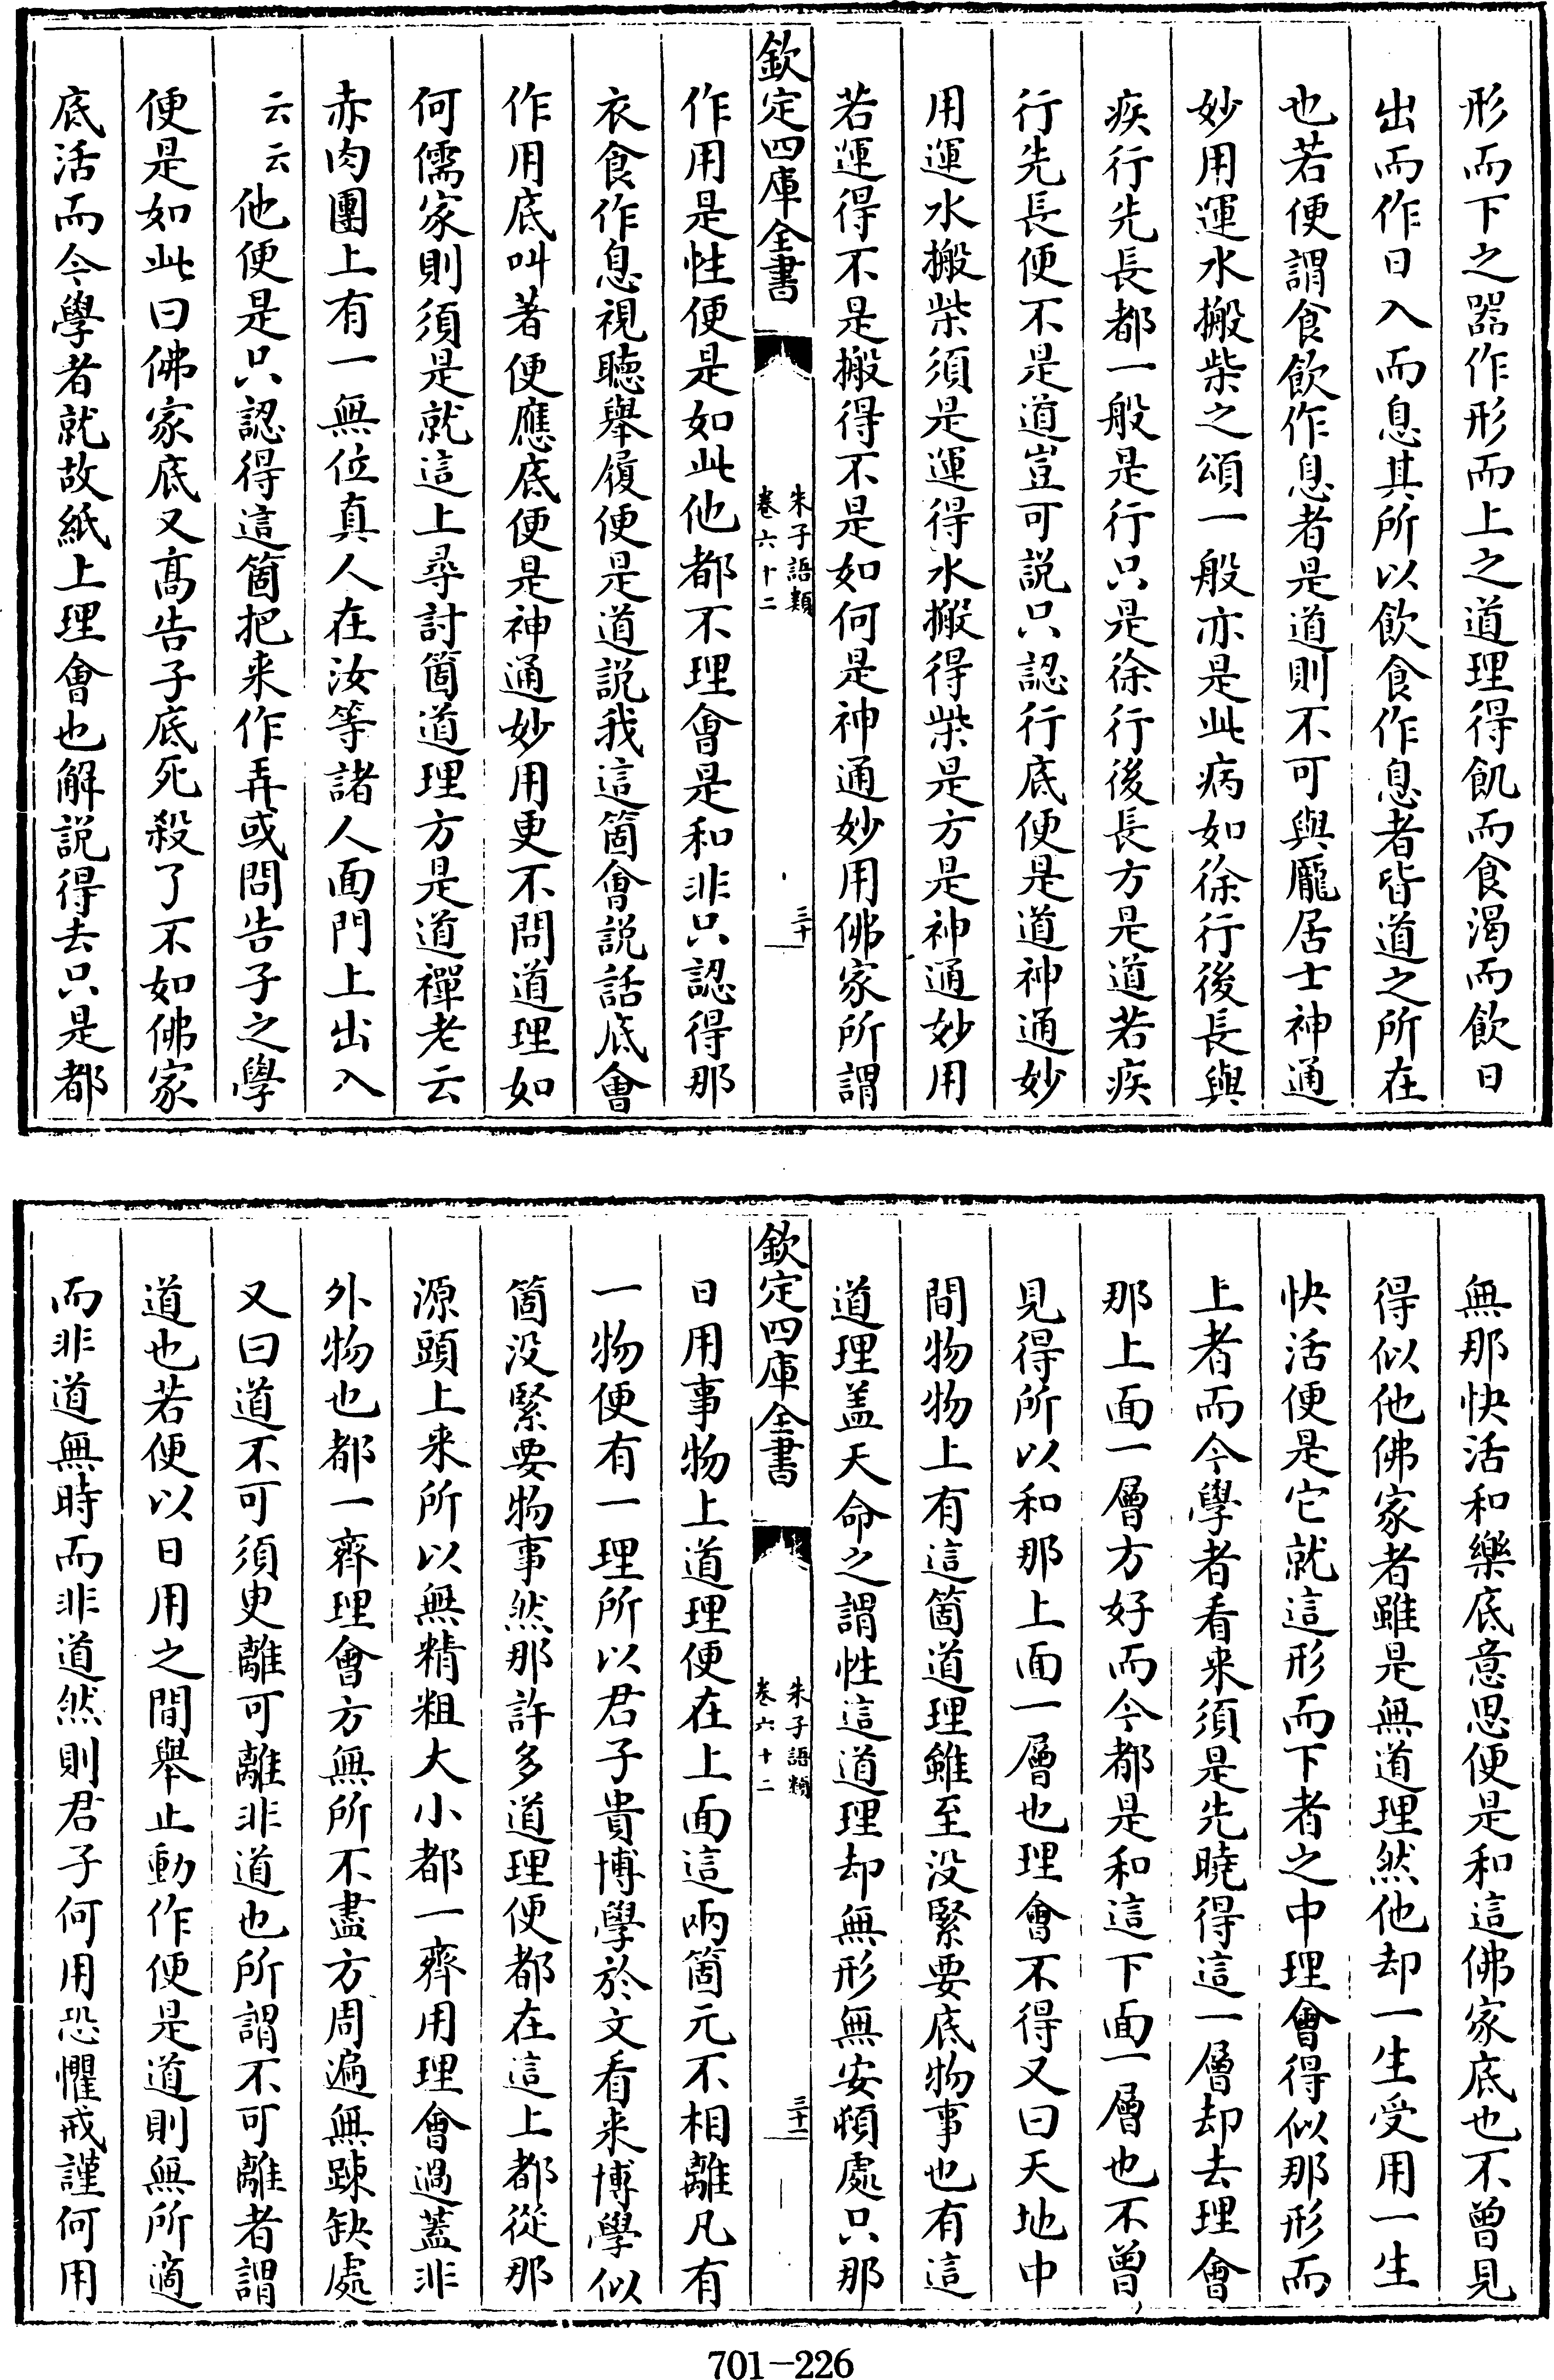 形而下之器作形而上之道理得飢而食渴而飲日
出而作日入而息其所以飲食作息者皆道之所在
也若便謂食飲作息者是道則不可與龎居士神通
妙用運水搬柴之頌一般亦是此病如徐行後長與
疾行先長都一般是行只是徐行後長方是道若疾
行先長便不是道豈可説只認行底便是道神通妙
用運水搬柴須是運得水搬得柴是方是神通妙用
若運得不是搬得不是如何是神通妙用佛家所謂
欽定四庫全書
朱子語類
卷六十二
三十
作用是性便是如此他都不理會是和非只認得那
衣食作息視聽舉履便是道説我這箇會説話底會
作用底叫著便應底便是神通妙用更不問道理如
何儒家則須是就這上尋討箇道理方是道禪老云
赤肉團上有一無位真人在汝等諸人面門上出入
云云他便是只認得這箇把来作弄或問告子之學
便是如此曰佛家底又高告子底死殺了不如佛家
底活而今學者就故紙上理會也解説得去只是都
無那快活和樂底意思便是和這佛家底也不曽見
得似他佛家者雖是無道理然他却一生受用一生
快活便是它就這形而下者之中理會得似那形而
上者而今學者看来須是先曉得這一層却去理會
那上面一層方好而今都是和這下面一層也不曽
見得所以和那上面一層也理會不得又曰天地中
間物物上有這箇道理雖至没緊要底物事也有這
道理盖天命之謂性這道理却無形無安頓處只那
欽定四庫全書
朱子語類
卷六十二
三十一
日用事物上道理便在上面這兩箇元不相離凡有
一物便有一理所以君子貴博學於文看来博學似
箇没緊要物事然那許多道理便都在這上都從那
源頭上来所以無精粗大小都一齊用理會過蓋非
外物也都一齊理會方無所不盡方周遍無踈缺處
又曰道不可須臾離可離非道也所謂不可離者謂
道也若便以日用之間舉止動作便是道則無所適
而非道無時而非道然則君子何用恐懼戒謹何用
701-226